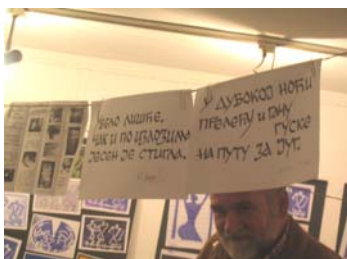 ЛИШЋЕ.
ЧАК И ПО ИЗЛОЗИМА
ЈЕСЕН ЈЕ СТИГЛА.
У ДУБОКОЈ НОЋИ
ПРЕЛЕЋУ И
ГУСКЕ
НА ПУТУ ЗА ЈУГ.